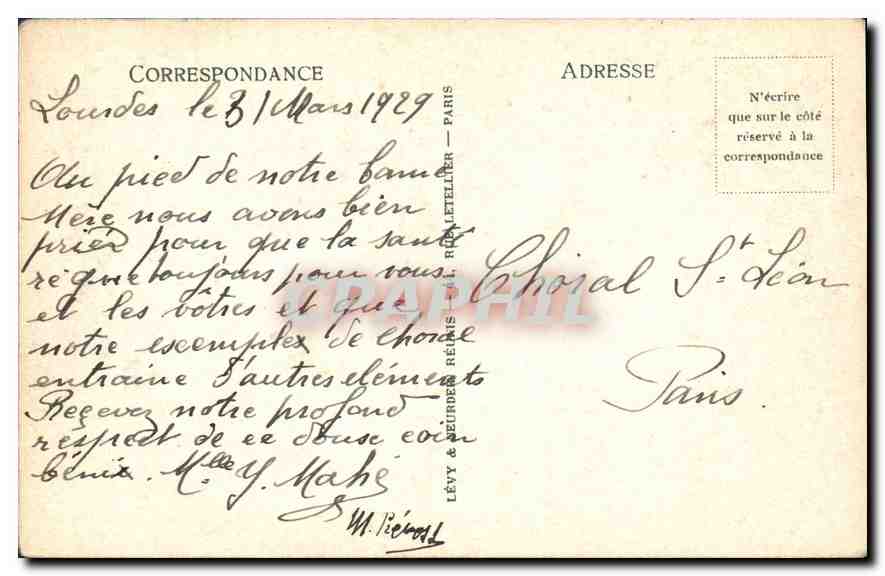 CORRESPONDANCE
Lourdes le 31 Mars 1929
Au pied de notre bonne
Mère nous avons bien
prier pour que la santé
règne toujours pour vous
et les vôtres et que
notre escemplex de choral
entraine d'autres eléments
Reçever notre profond
respect de ce douse coin
bénix. Mlle Y. Mahé
M. Prévost
LÉVY & NEURDEIN RÉUNIS 44, RUE LETELLIER — PARIS
ADRESSE
N'écrire
que sur le côté
réservé à la
correspondance
Choral St. Léon
Paris.
CARAPHIL